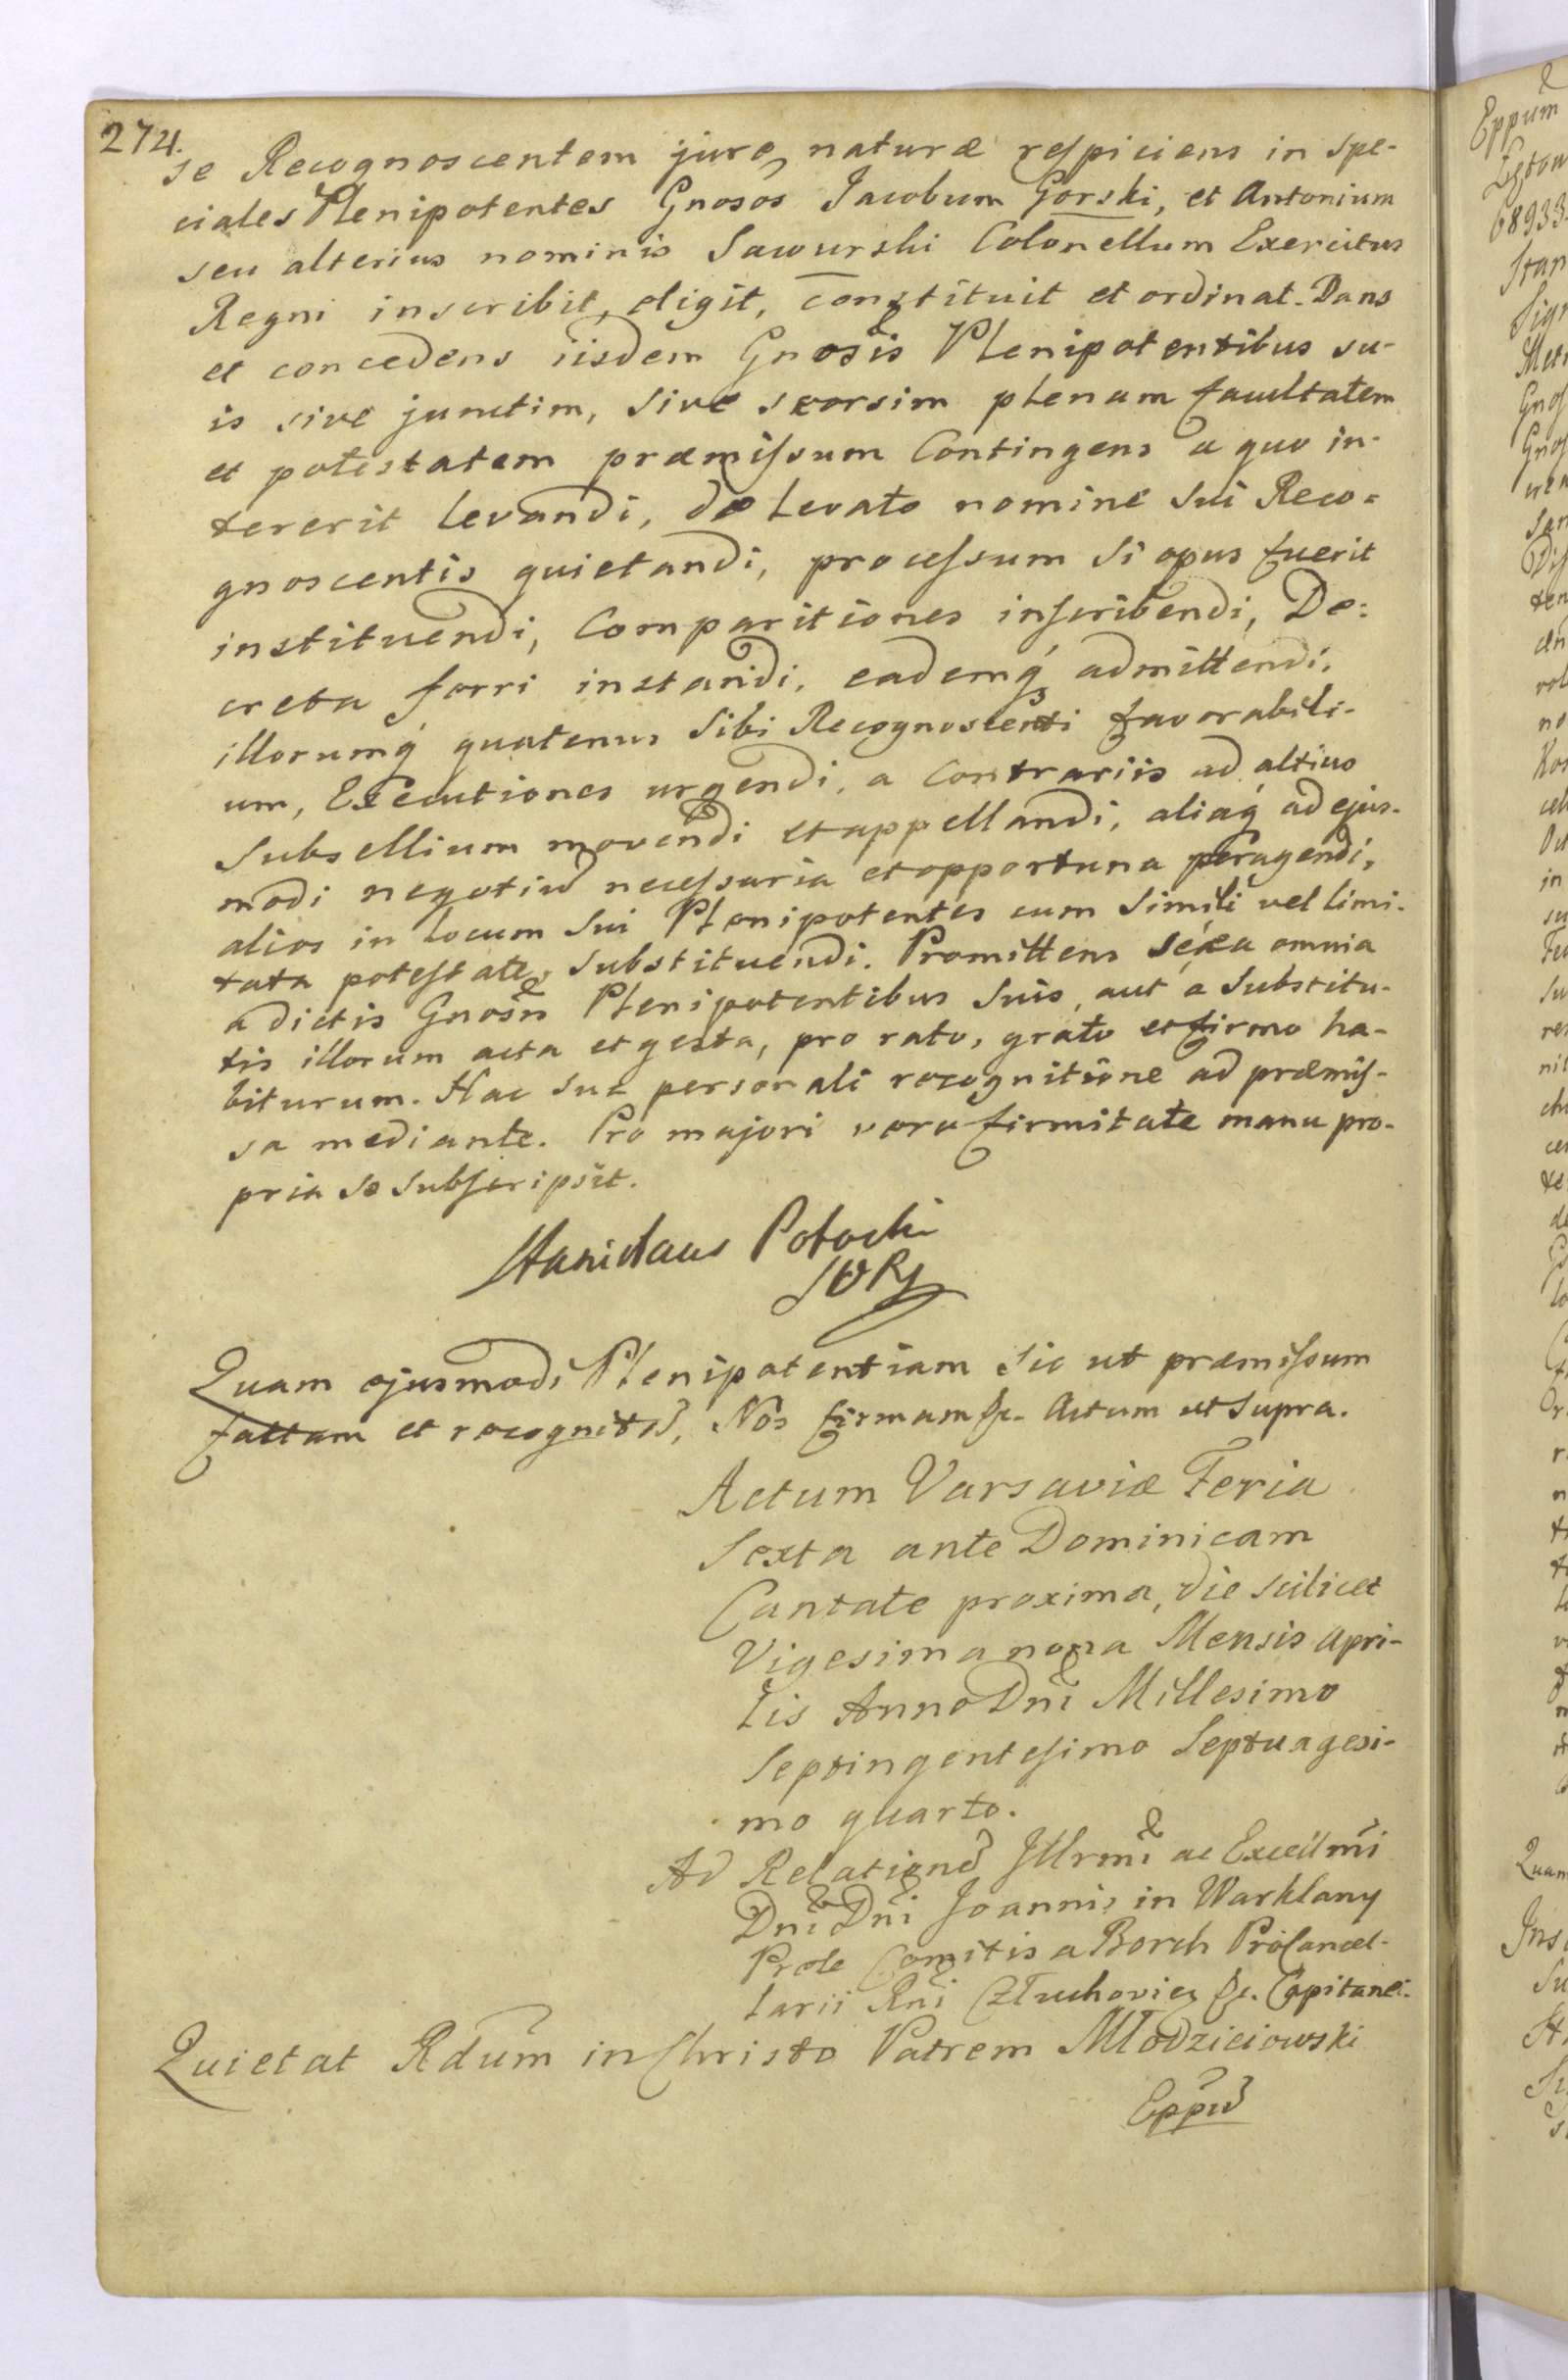 274.
se Recognoscentem jure naturæ respiciens in spe-
ciales Plenipotentes Gnosos Jacobum Gorski, et Antonium
seu alterius nominis Sawurski Colonellum Exercitus
Regni inscribit, eligit, constituit et ordinat. Dans
et concedens iisdem Gnosis Plenipotentibus su-
is sive junctim, sive seorsim plenam facultatem
et potestatem præmissum Contingens a quo in-
tererit levandi, de levato nomine sui Reco-
gnoscentis quietandi, processum si opus fuerit
instituendi, Comparitiones inscribendi, De-
creta ferri instandi, eademq́ admittendi,
illorumq́ quatenus sibi Recognoscenti favorabili-
um, Executiones urgendi, a Contrariis ad altius
Subsellium movendi et appellandi, aliaq́ ad ejus-
modi negotium necessaria et opportuna peragendi,
alios in locum sui Plenipotentes cum simili vel limi-
tata potestate, substituendi. Promittens se ea omnia
a dictis Gnosis Plenipotentibus suis, aut a substitu-
tis illorum acta et gesta, pro rato, grato et firmo ha-
biturum. Hac sua personali recognitione ad præmis-
sa mediante. Pro majori vero firmitate manu pro-
pria se subscripsit.
Stanislaus Potocki
Quam ejusmodi Plenipotentiam sic ut præmissum
factam et recognitam, Nos firmam &c. Actum ut supra.
Actum Varsaviæ Feria
Sexta ante Dominicam
Cantate proxima, die scilicet
Vigesima nona Mensis Apri-
lis Anno Dni Millesimo
Septingentesimo Septuagesi-
mo quarto.
Ad Relationem Jllrmi ac Excellmi
Dni Dni Joannis in Warklany
Prele Comitis a Borch Procancel-
larii Rni Człuchovien &c. Capitanei.
Quietat Rdum in Christo Patrem Młodzieiowski
Eppum
Eppum
68933
Stan
Sign
Metr
Gnos
Gnos